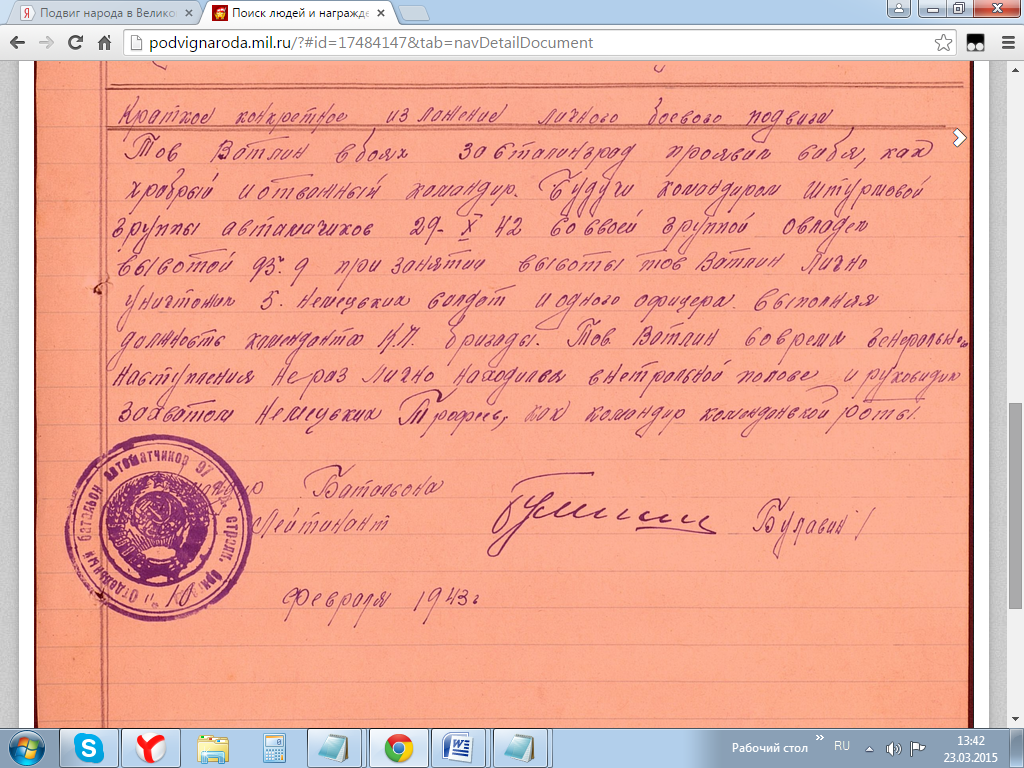 Подвиг народа в Велико
Поиск людей и награжде
podvignaroda.mil.ru/?#id=17484147&tab=navDetailDocument
Краткое конкретное изложение личного боевого подвига
Тов Ватлин в боях за Сталинград проявил себя, как
храбрый и отважный командир. Будучи командиром штурмовой
группы автаматчиков 29-X 42 со своей группой овладел
высотой 95.9 при занятии высоты тов Ватлин лично
уничтожил 5. немецких солдат и одного офицера. выполняя
должность коменданта К.П. бригады. Тов Ватлин во время генерально
наступления не раз лично находился в нетральной полосе и руководил
захватом немецких Трофеев, как командир комендантской роты.
Батальона
Лейтинант Булавин /
10 февраля 1943 г
Отдельный батальон автоматчиков 97 стрелк. бриг
Рабочий стол » RU 13:42
23.03.2015